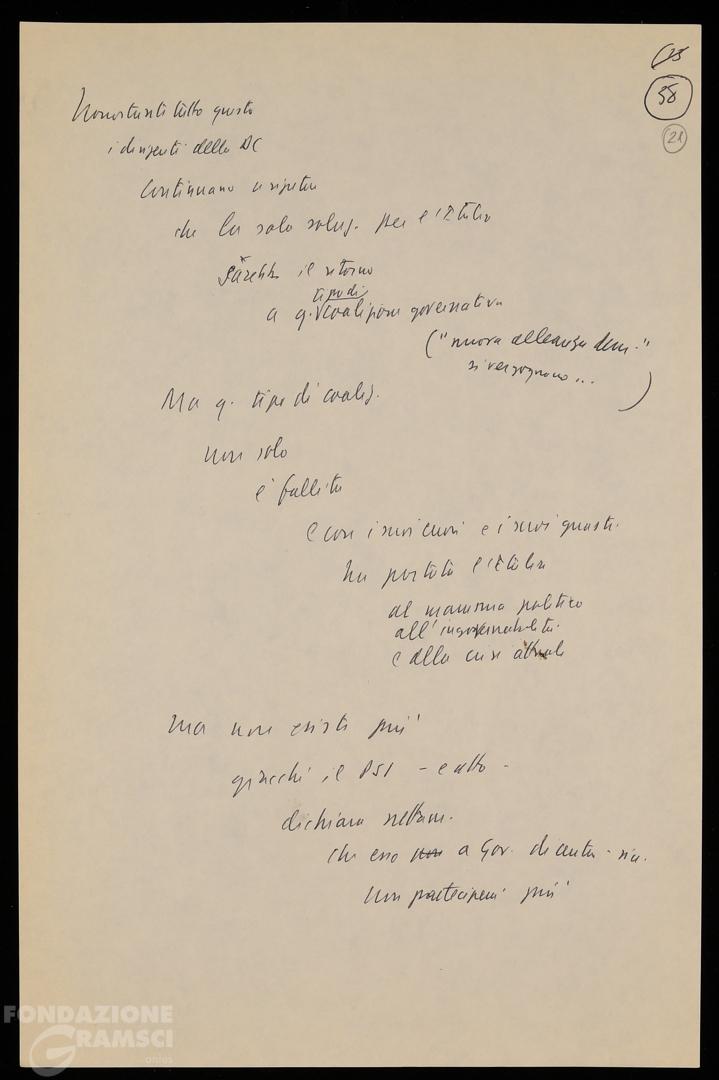 58
21
Nonostante tutto questo
i dirigenti della DC
continuano a ripetere
che la sola soluz. per l'Italia
sarebbe il ritorno
tipo di
a q. coalizione governativa
("nuova alleanza dem."
si vergognano...
)
Ma q. tipo di coaliz.
non solo
è fallito
e con i suoi errori e i suoi guasti
ha portato l'Italia
al marasma politico
all'ingovernabilità
e alla crisi attuale
ma non esiste più
giacché il PSI - e altro -
dichiara nettam.
che esso non a Gov. di centro-sin.
non parteciperà più
FONDAZIONE
GRAMSCI
onlus